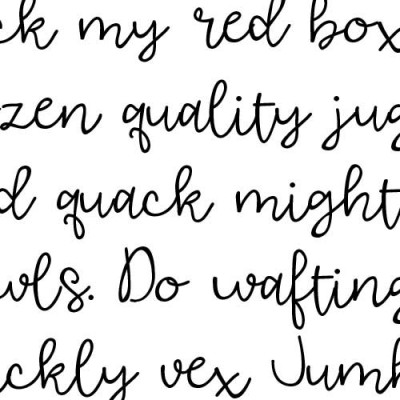 ck my red box
zen quality jug
d quack might
wls. Do wafting
ickly vex Jumb